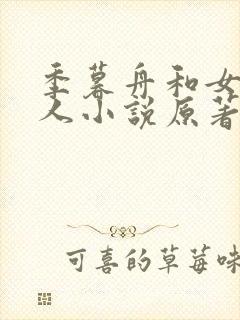 季暮舟和女
人小说原著
可喜的草莓味